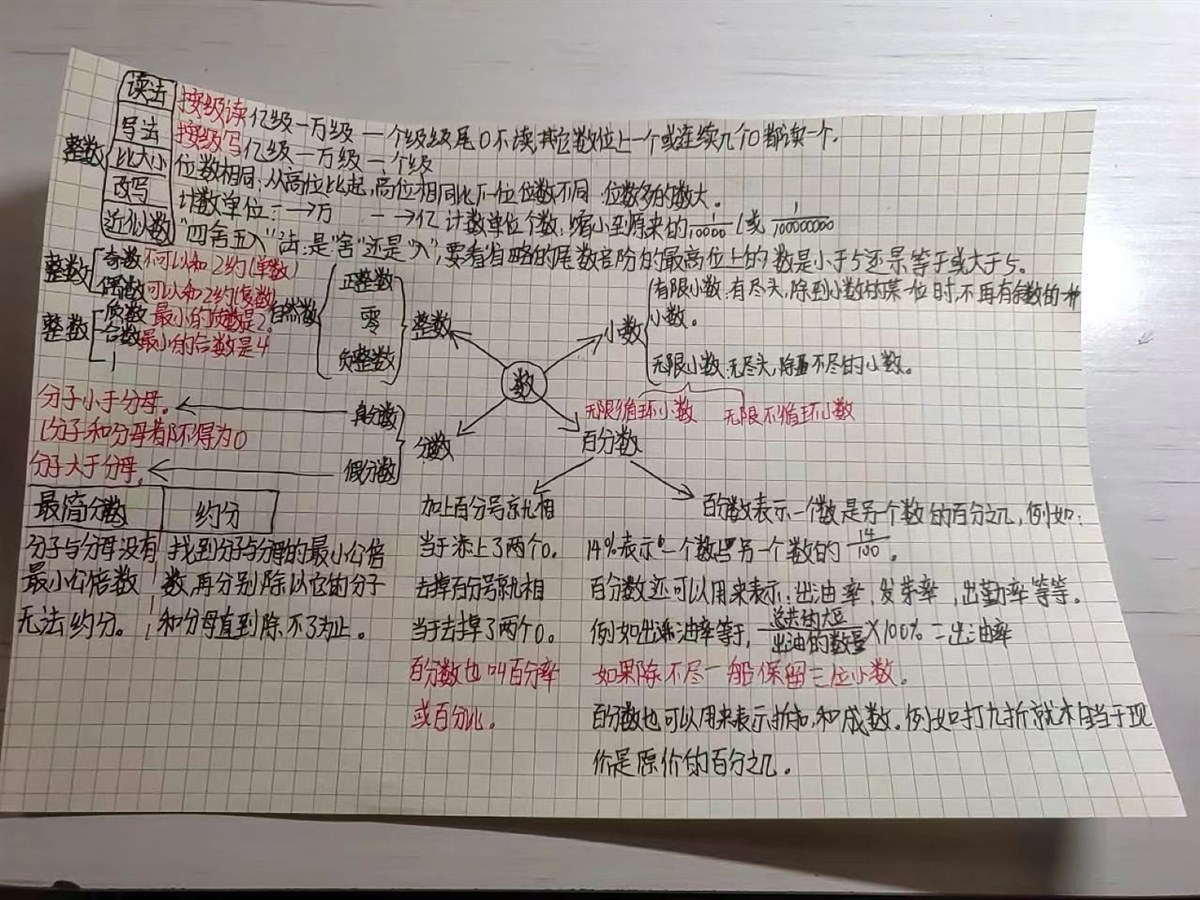 整数
读法 按级读亿级一万级一个级级尾0不读,其它数位上一个或连续几个0都读一个.
写法 按级写亿级一万级一个级
比大小 位数相同:从高位比起,高位相同比下一位位数不同:位数多的数大。
改写 计数单位:一→万 一→亿 计数单位个数:缩小到原来的1/10000或1/100000000
近似数 "四舍五入"法:是"舍"还是"入",要看省略的尾数部分的最高位上的数是小于5还是等于或大于5。
整数
奇数 不可以和2约(单数)
偶数 可以和2约(复数)
整数
质数 最小的质数是2。
合数 最小的合数是4
1
自然数
正整数
零
负整数
整数
数
小数
有限小数:有尽头,除到小数的某一位时,不再有余数的一种
小数。
无限小数:无尽头,除不尽的小数。
无限循环小数 无限不循环小数
分数
真分数
分子小于分母。
(分子和分母都不得为0
假分数
分子大于分母。
最简分数 约分
分子与分母没有
最小公倍数
无法约分。
找到分子与分母的最小公倍
数,再分别除以它的分子
和分母直到除不了为止。
百分数
加上百分号就相
当于添上了两个0。
去掉百分号就相
当于去掉了两个0。
百分数也叫百分率
或百分比。
百分数表示一个数是另个数的百分之几,例如:
14%表示一个数是另一个数的14/100。
百分数还可以用来表示:出油率,发芽率,出勤率等等。
例如出油率等于,的大豆/出油的数量×100%=出油率
如果除不尽一般保留三位小数。
百分数也可以用来表示折扣,和成数。例如打九折就相当于现
价是原价的百分之几。